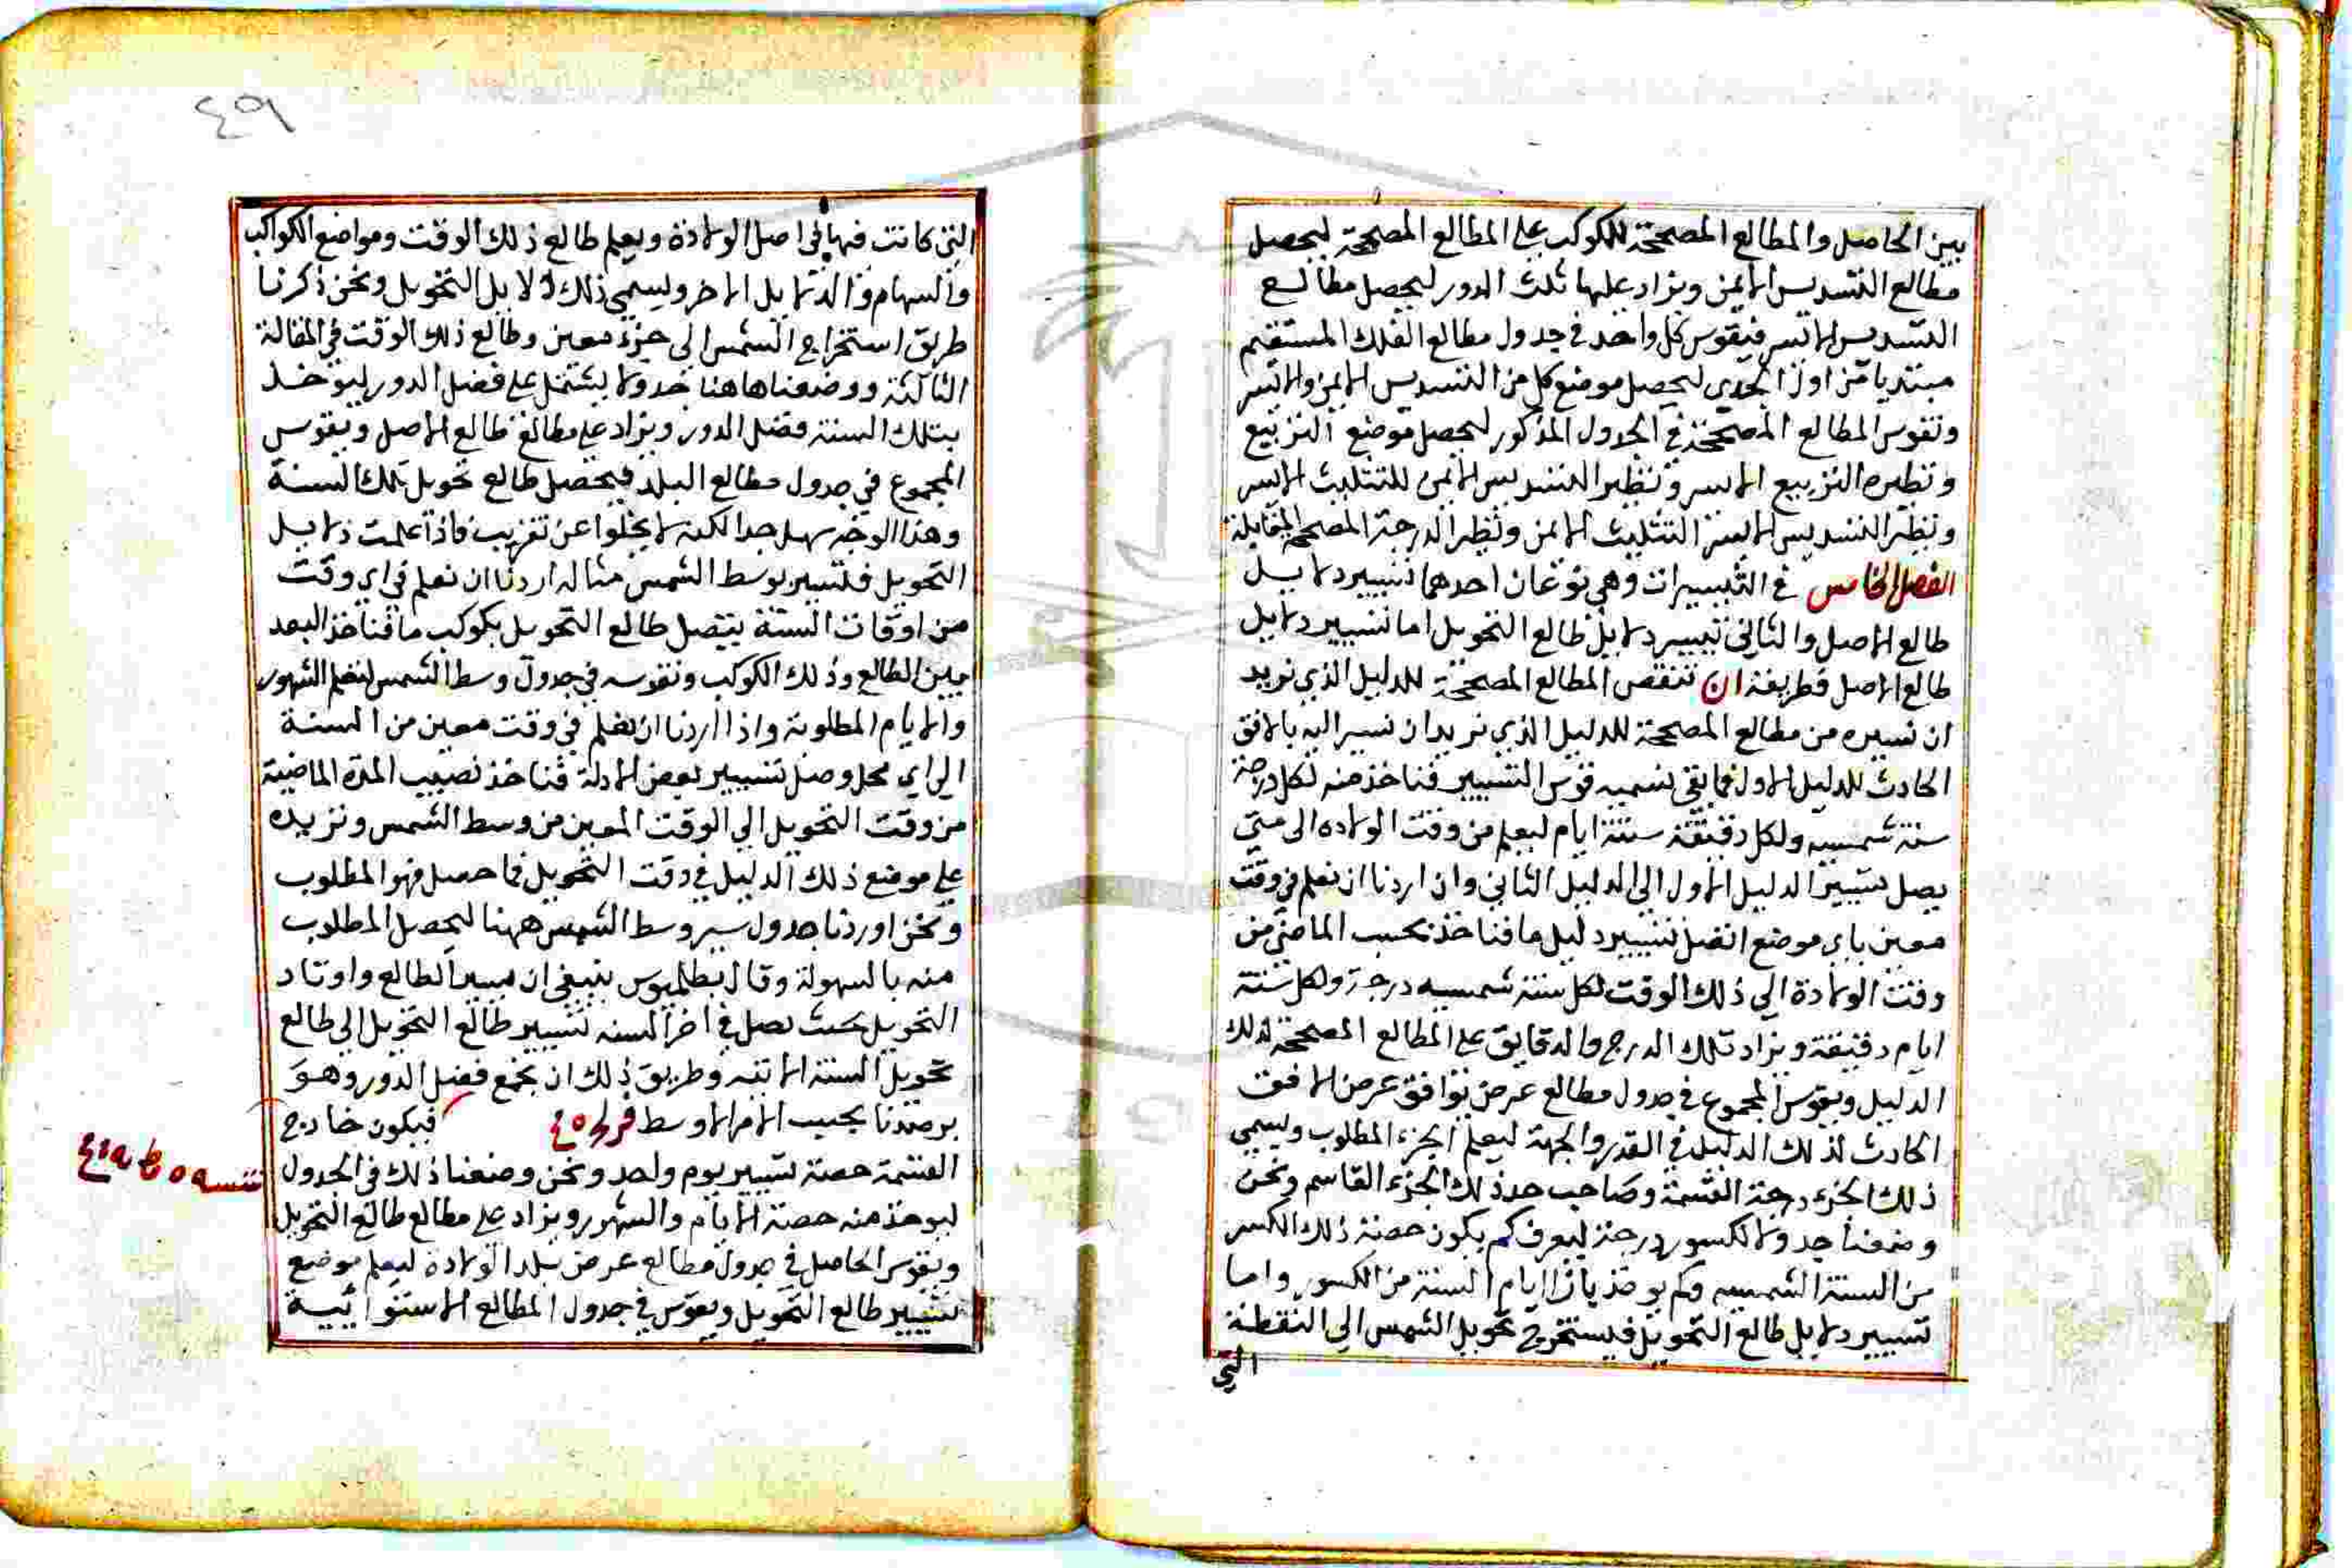 بين الحاصل والمطالع المصححة للكوكب على المطالع المصححة ليحصل
مطالع التسديس الايمن ويزاد عليها ثلث الدور ليحصل مطالع
التسديس الايسر فيقوس كل واحد في جدول مطالع الفلك المستقيم
مبتديا من اول الجدي ليحصل موضع كل من التسديس الايمن والايسر
ونقوس المطالع المصححة في الجدول المذكور ليحصل موضع التربيع
ونظيره التربيع الايسر ونظير التسديس الايمن للتثليث الايسر
ونظير التسديس الايسر التثليث الايمن ونظير الدرجة المصححة المقابلة
الفصل الخامس في التسييرات وهي نوعان احدهما تسيير دلايل
طالع الاصل والثاني تسيير دلايل طالع التحويل اما تسيير دلايل
طالع الاصل فطريقة ان ننقص المطالع المصححة للدليل الذي نريد
ان نسيره من مطالع المصححة للدليل الذي نريد ان نسير اليه بالافق
الحادث للدليل الاول فما بقي نسميه قوس التسيير فناخذ منه لكل درجة
سنة شمسيه ولكل دقيقة ستة ايام ليعلم من وقت الولاده الى متى
يصل تسيير الدليل الاول الى الدليل الثاني وان اردنا ان نعلم في وقت
معين باي موضع اتصل تسيير دليل ما فناخذ بحسب الماضي من
وقت الولادة الي ذلك الوقت لكل سنة شمسيه درجة ولكل ستة
ايام دقيقة ويزاد تلك الدرج والدقايق على المطالع المصححة لذلك
الدليل ويقوس المجموع في جدول مطالع عرض يوافق عرض الافق
الحادث لذلك الدليل في القدر والجهة ليعلم الجزء المطلوب ويسمي
ذلك الجزء درجة القسمة وصاحب حد ذلك الجزء القاسم ونحن
وضعنا جدولا لكسور درجة ليعرف كم يكون حصة ذلك الكسر
من السنة الشمسيه وكم يوخذ بازا ايام السنة من الكسور واما
تسيير دلايل طالع التحويل فيستخرج تحويل الشمس الي النقطة
التي
٤٩
التي كانت فيها في اصل الولادة ويعلم طالع ذلك الوقت ومواضع الكواكب
والسهام والدلايل الاخر ويسمي ذلك دلايل التحويل ونحن ذكرنا
طريق استخراج الشمس الي جزء معين وطالع ذلك الوقت في المقالة
الثالثة ووضعنا هاهنا جدولا يشتمل على فضل الدور ليوخذ
بتلك السنة فضل الدور ويزاد على مطالع طالع الاصل ويقوس
المجموع في جدول مطالع البلد فيحصل طالع تحويل تلك السنة
وهذا الوجه سهل جدا لكنه لا يخلوا عن تقريب فاذا علمت دلايل
التحويل فلتسيير بوسط الشمس مثاله اردنا ان نعلم في اي وقت
من اوقات السنة يتصل طالع التحويل بكوكب ما فناخذ البعد
بين الطالع وذلك الكوكب ونقوسه في جدول وسط الشمس لنعلم الشهور
والايام المطلوبة واذا اردنا ان نعلم في وقت معين من السنة
الي اي محل وصل تسيير بعض الادلة فناخذ نصيب المدة الماضية
من وقت التحويل الي الوقت المعين من وسط الشمس ونزيده
على موضع ذلك الدليل في وقت التحويل فما حصل فهو المطلوب
ونحن اوردنا جدول سير وسط الشمس ههنا ليحصل المطلوب
منه بالسهولة وقال بطلميوس ينبغي ان مسير الطالع واوتاد
التحويل بحيث يصل في اخر السنه تسيير طالع التحويل الي طالع
تحويل السنة الاتيه وطريق ذلك ان يجمع فضل الدور وهو
برصدنا بحسب الامر الاوسط فيكون خارج
القسمة حصة تسيير يوم واحد ونحن وضعنا ذلك في الجدول
ليوخذ منه حصة الايام والشهور ويزاد على مطالع طالع التحويل
ويقوس الحاصل في جدول مطالع عرض بلد الولادة ليعلم موضع
تسيير طالع التحويل ويقوس في جدول المطالع الاستوائية